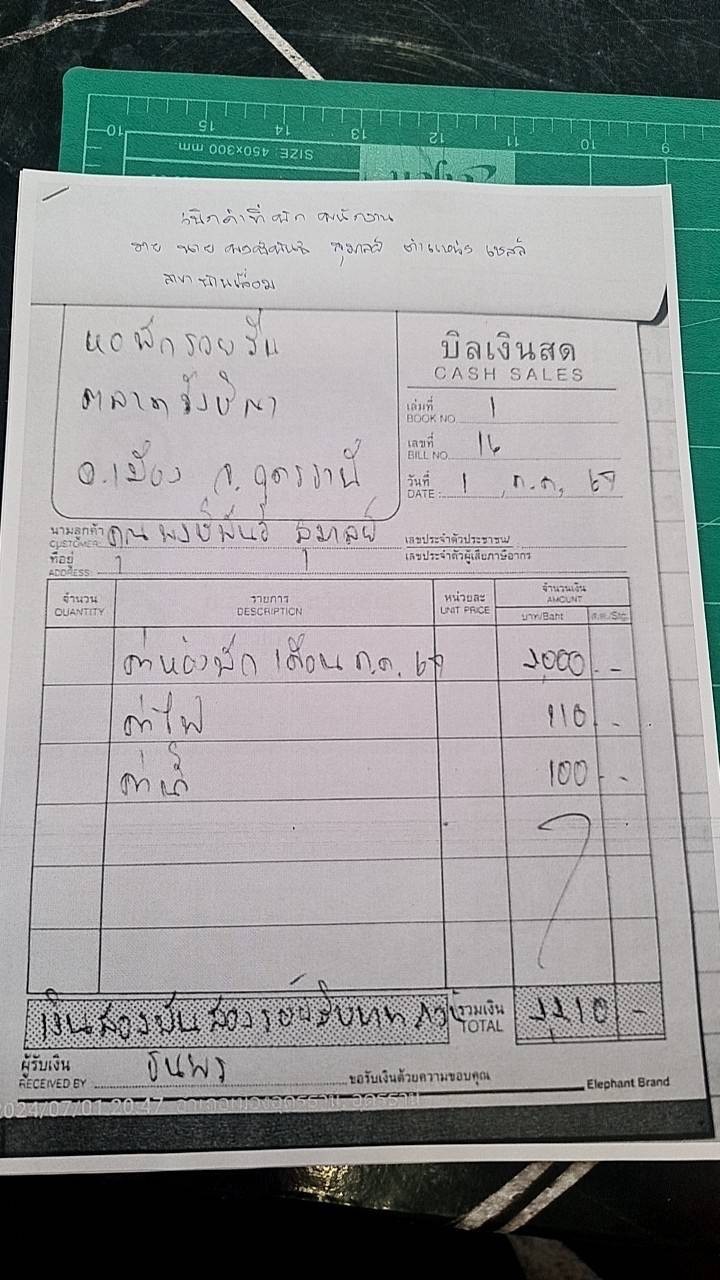 10 15 14 13 12 11 10 9
SIZE: 450x300 mm
เบิกค่าที่พัก พนักงาน
นาย สุมาลย์ ตำแหน่ง เซลล์
สาขา บ้านเลื่อม
หอพักรวยริน
ตลาดรังษิณา
อ.เมือง จ.อุดรธานี
บิลเงินสด
CASH SALES
เล่มที่ 1
BOOK NO.
เลขที่ 16
BILL NO.
วันที่ 1 ก.ค. 67
DATE :
นามลูกค้า คุณ พงษ์พันธ์ สุมาลย์
CUSTOMER:
เลขประจำตัวประชาชน
ที่อยู่
ADDRESS:
เลขประจำตัวผู้เสียภาษีอากร
จำนวน รายการ หน่วยละ จำนวนเงิน
QUANTITY DESCRIPTION UNIT PRICE AMOUNT
บาท/Baht ส.ต./Stg.
ค่าห้องพัก เดือน ก.ค. 67 2,000 . -
ค่าไฟ 110 . -
ค่าน้ำ 100 - -
เงินสองพันสองร้อยสิบบาทถ้วน รวมเงิน 2,210 -
TOTAL
ผู้รับเงิน ธนพร ขอรับเงินด้วยความขอบคุณ
RECEIVED BY Elephant Brand
2024/07/01 20:47 อำเภอเมืองอุดรธานี, อุดรธานี